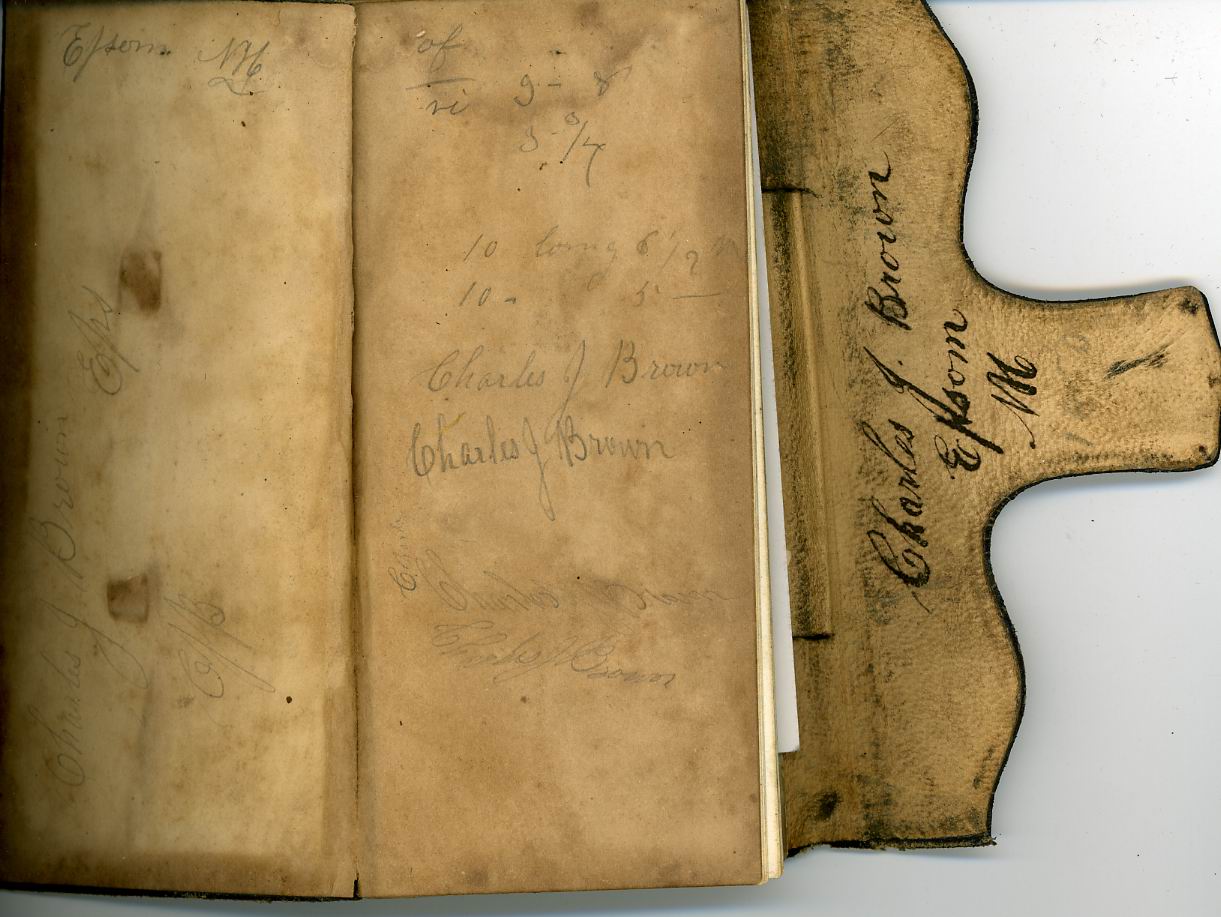 Epsom NH
Charles J. Brown
Eps
Eps
of
ri 9 - 8
10 long 6 1/2
10 - " 5 —
Charles J Brown
Charles J Brown
Charles Brown
Charles J Brown
Charles J. Brown
Epsom
NH